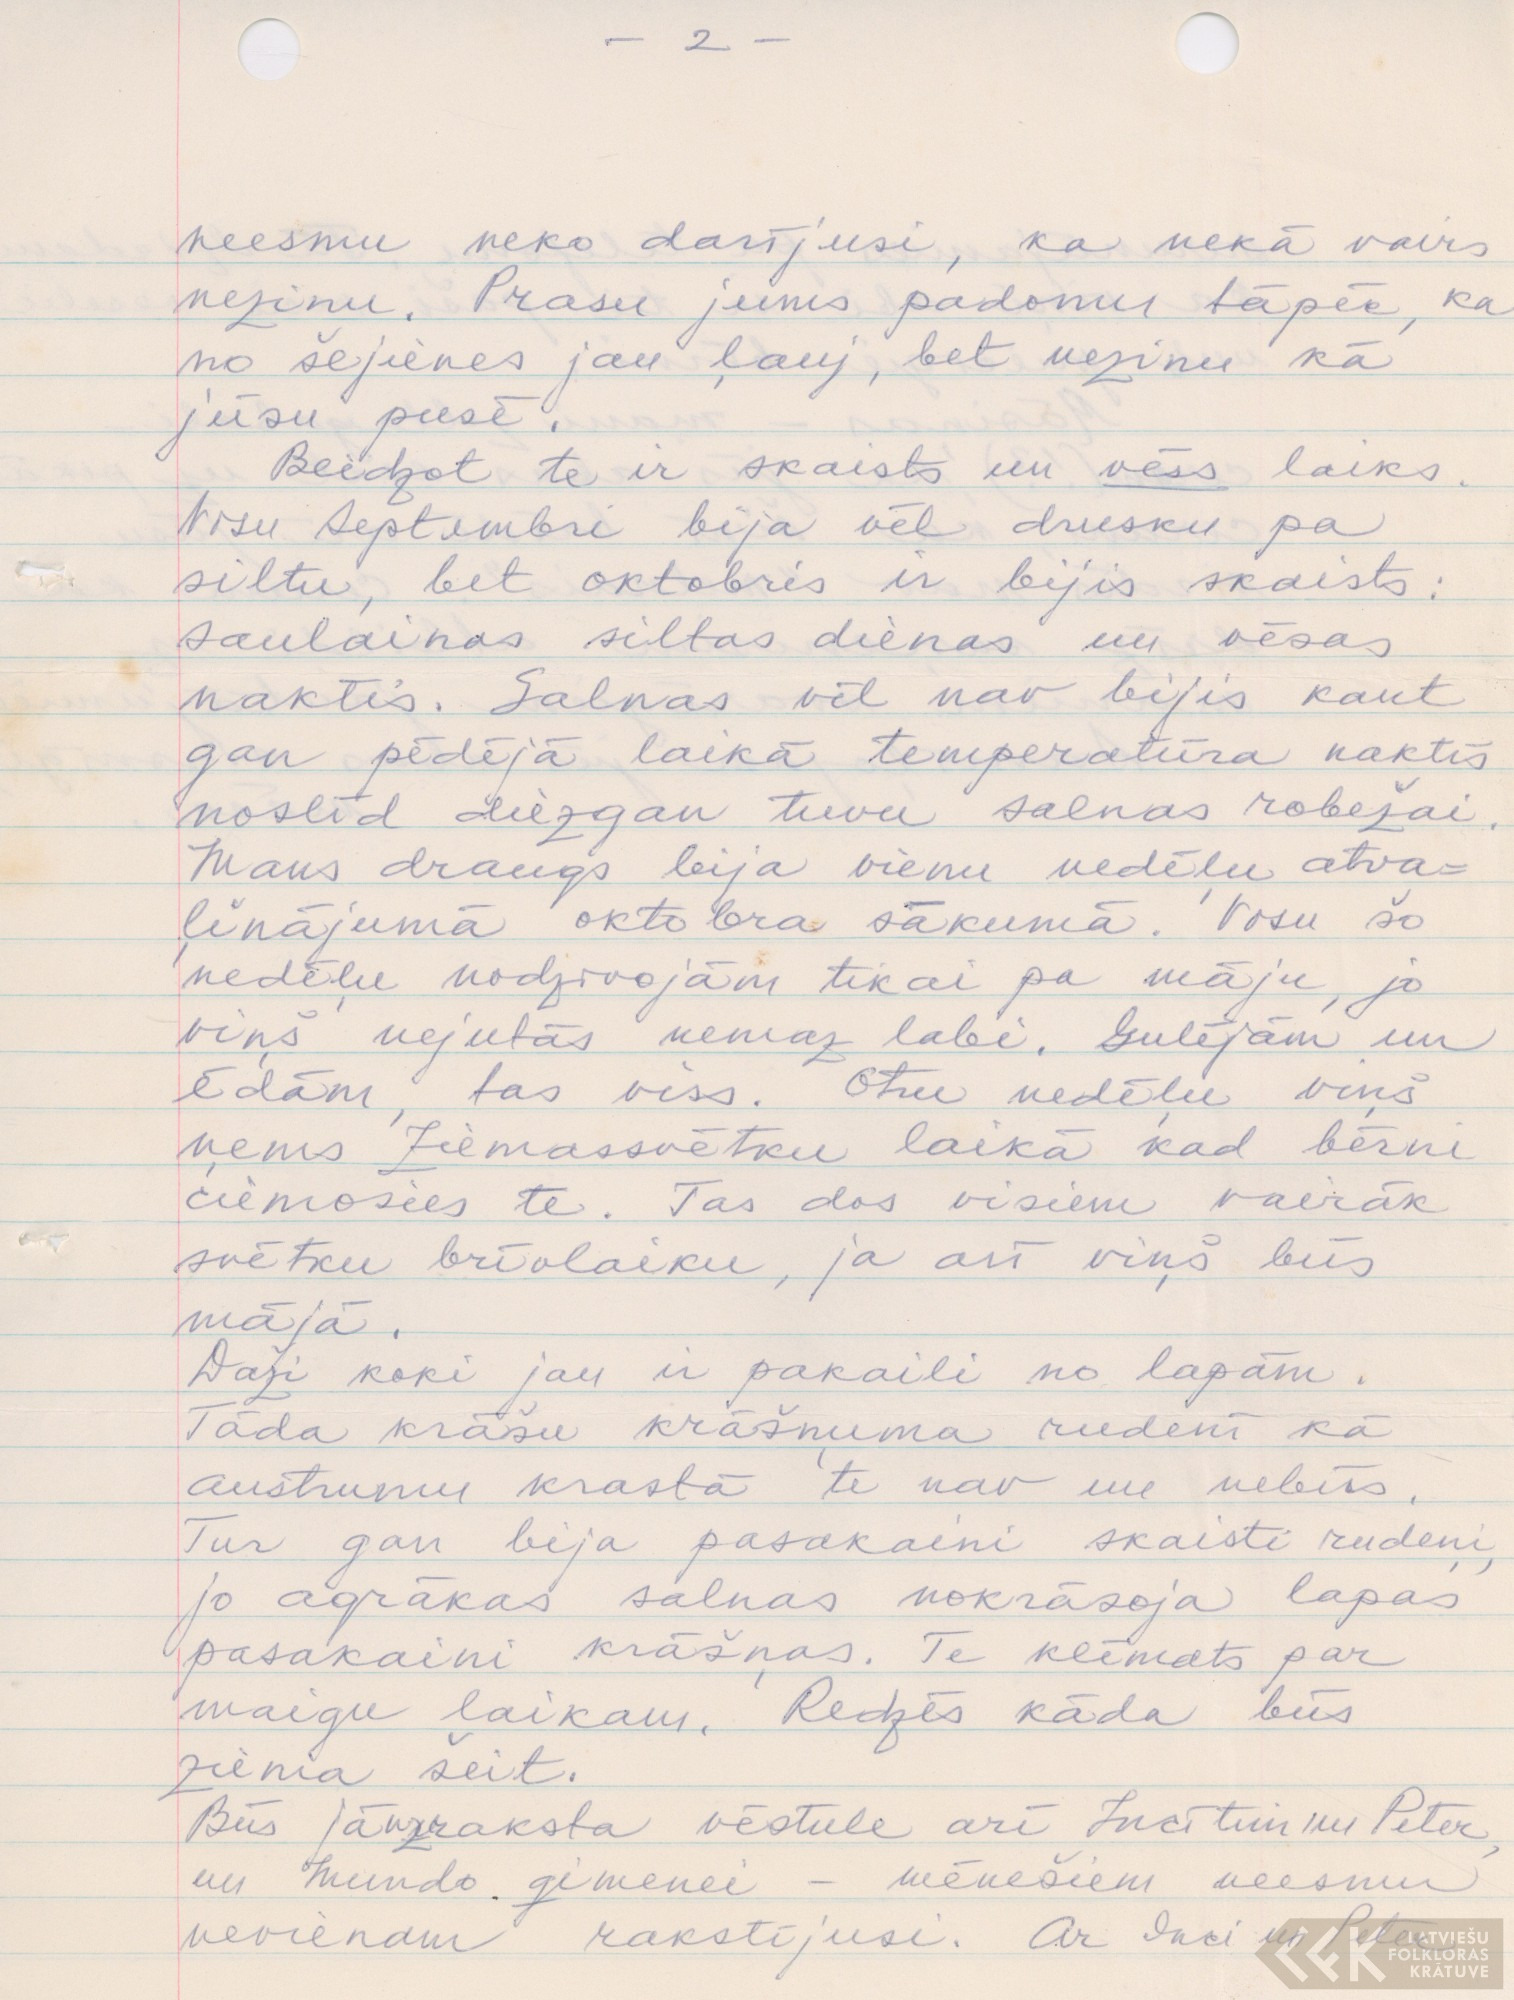 - 2 -
neesmu neko darījusi, ka nekā vairs
nezinu. Prasu jums padomu tāpēc, ka
no šejienes jau ļauj, bet nezinu kā
jūsu pusē.
Beidzot te ir skaists un vēss laiks.
Visu Septembri bija vēl drusku pa
siltu, bet oktobris ir bijis skaists:
saulainas siltas dienas un vēsas
naktis. Salnas vēl nav bijis kaut
gan pēdējā laikā temperatūra naktīs
noslīd diezgan tuvu salnas robežai.
Mans draugs bija vienu nedēļu atva=
ļinājumā oktobra sākumā. Visu šo
nedēļu nodzīvojām tikai pa māju, jo
viņš nejutās nemaz labi. Gulējām un
ēdām, tas viss. Otru nedēļu viņš
ņems Ziemassvētku laikā kad bērni
ciemosies te. Tas dos visiem vairāk
svētku brīvlaiku, ja arī viņš būs
mājā.
Daži koki jau ir pakaili no lapām.
Tāda krāšu krāšņuma rudenī kā
austrumu krastā te nav un nebūs.
Tur gan bija pasakaini skaisti rudeņi,
jo agrākas salnas nokrāsoja lapas
pasakaini krāšņas. Te klimats par
maigu laikam. Redzēs kāda būs
ziema šeit.
Būs jāuzraksta vēstule arī Incītim un Peter,
un Mundo ģimenei - mēnešiem neesmu
nevienam rakstījusi. Ar Inci un Peteru
LATVIEŠU
FOLKLORAS
KRĀTUVE